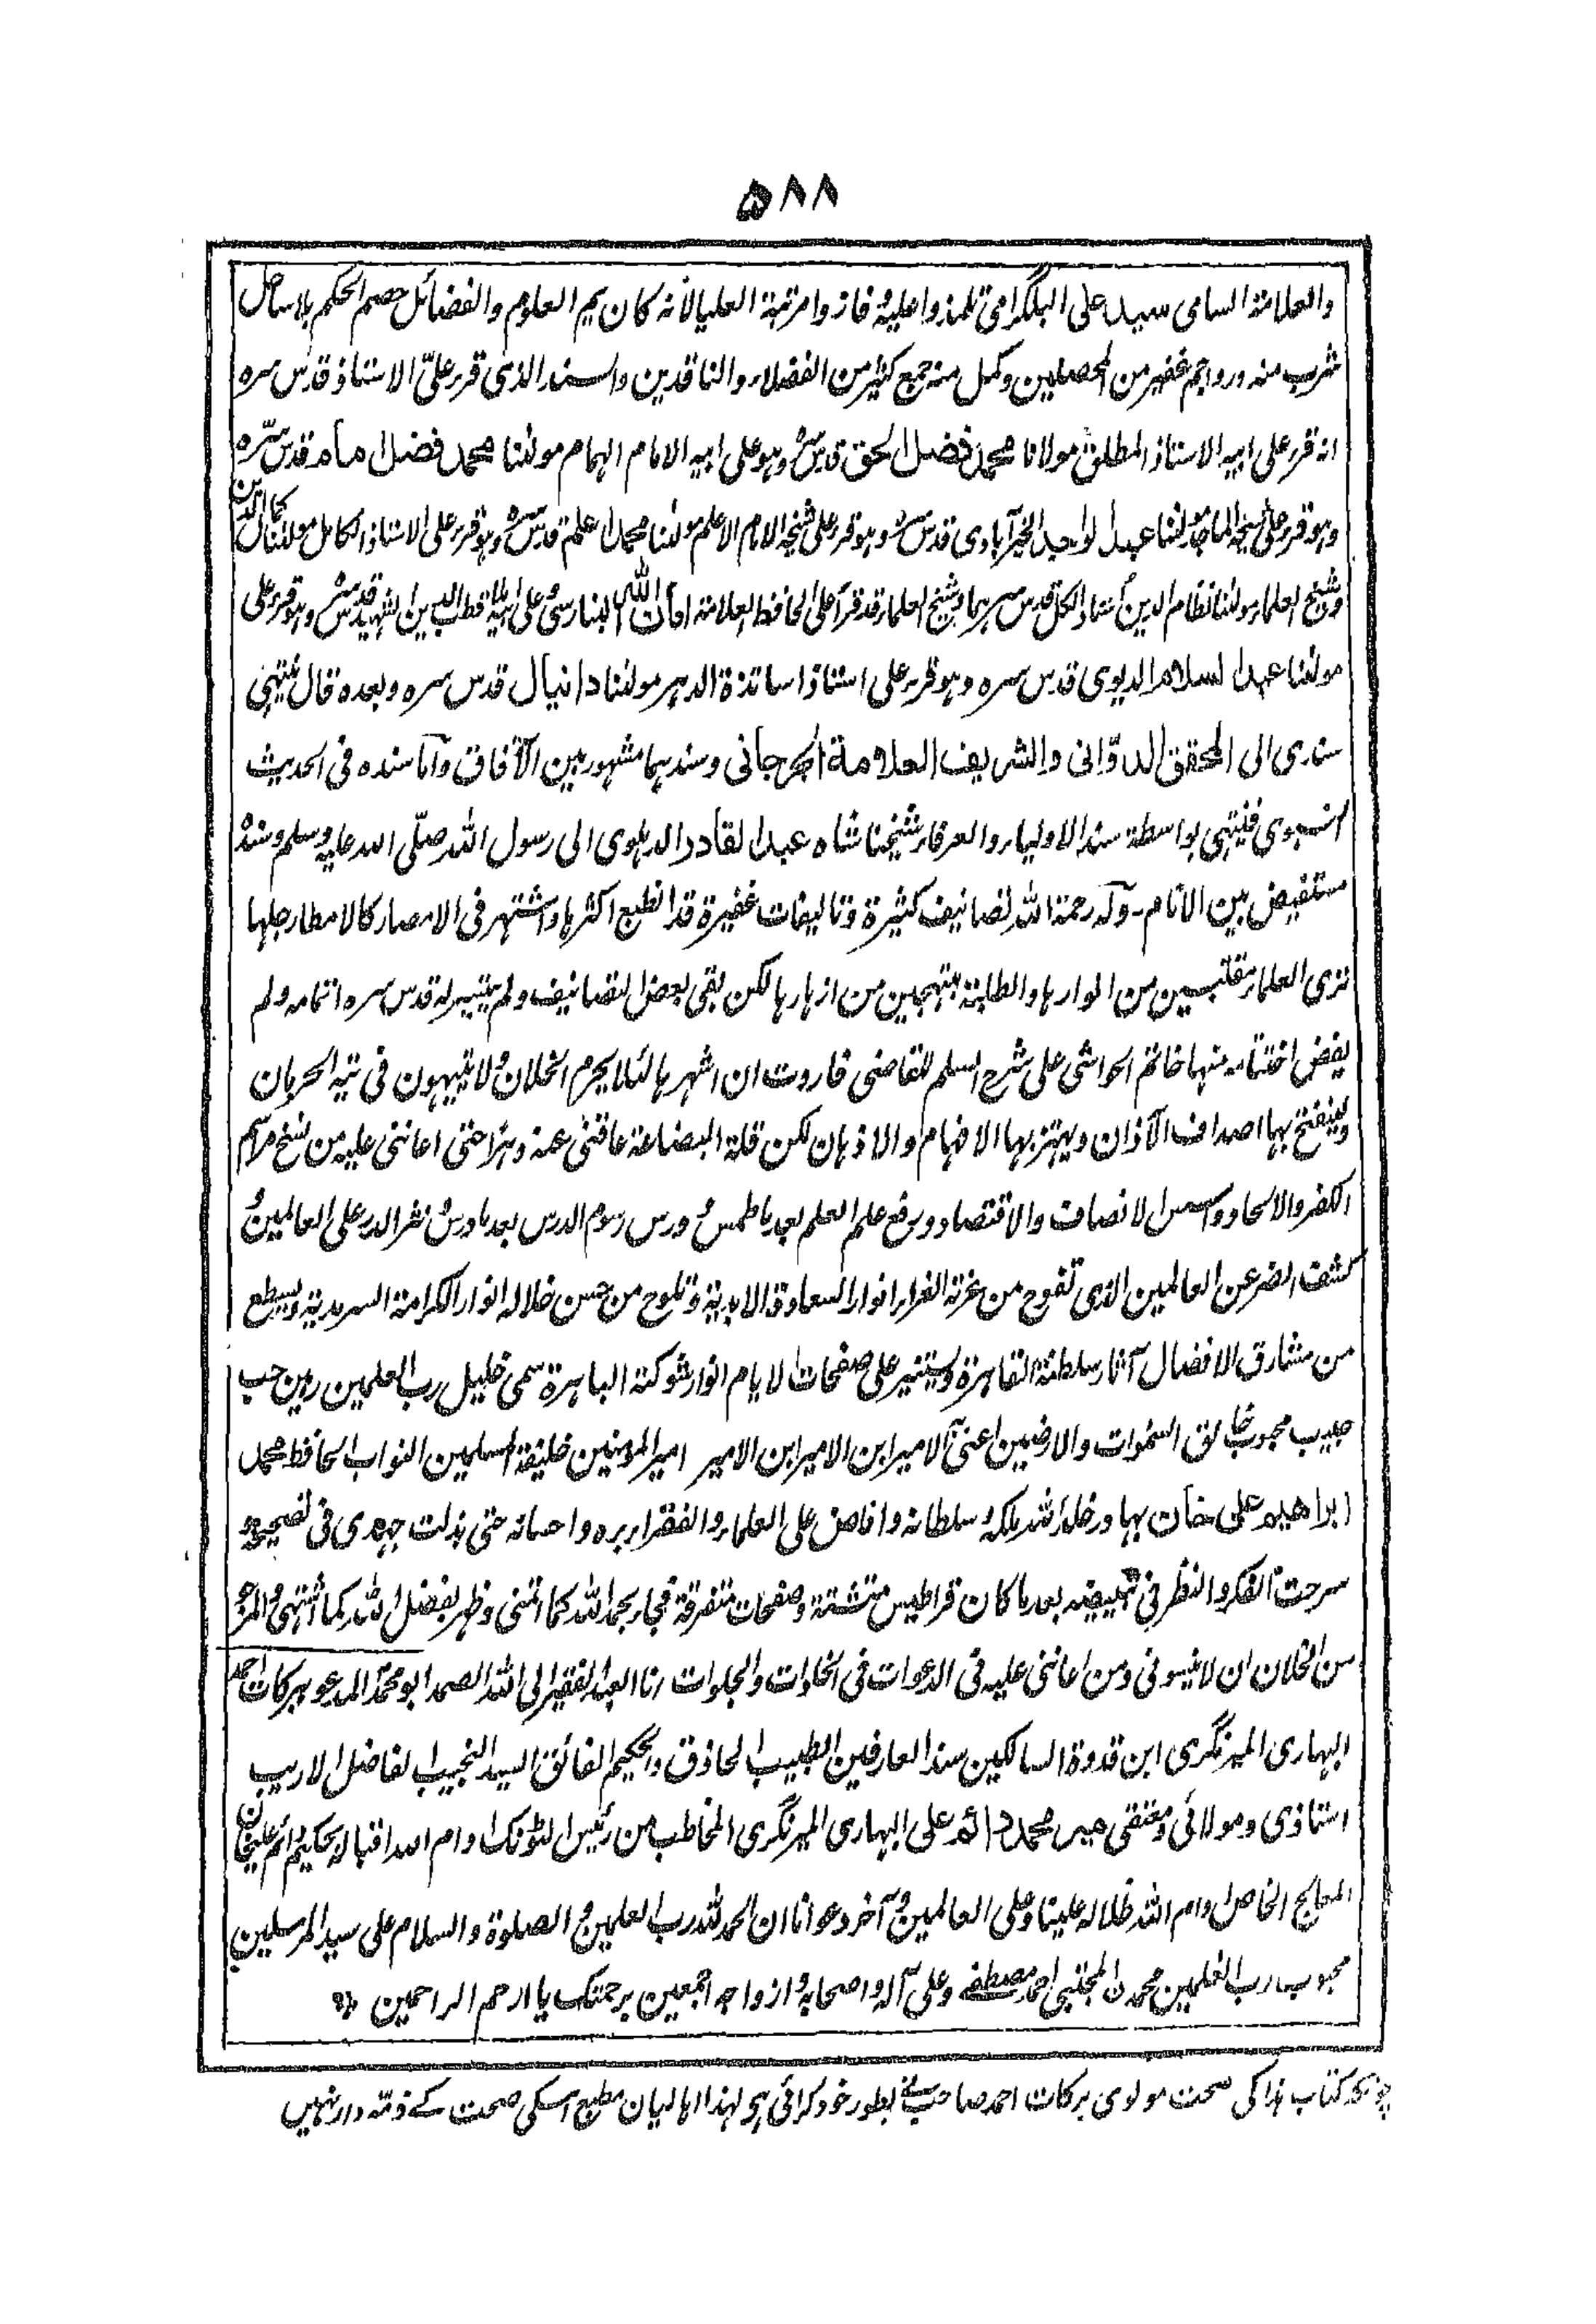 ۵۸۸
والعلامة السامی سید علی البلگرامی تلمذوا علیه و فازوا مرتبة العلیا لأنه کان یم العلوم والفضائل خصم الحکم بلا ساحل
شرب منه وروا جم غفیر من المحصلین وکمل منه جمع کثیر من الفضلاء والناقدین والسند الذی قرر علیّ الاستاذ قدس سره
انه قرر علی ابیه الاستاذ المطلق مولانا محمد فضل الحق قدس سره وهو علی ابیه الامام الهمام مولنا محمد فضل امام قدس سره
وهو قرر علی شیخه الماجد مولنا عبد الواجد الخیرآبادی قدس سره وهو قرر علی شیخه الامام الاعلم مولنا محمد اعلم قدس سره وهو قرر علی الاستاذ الکامل مولنا کمال الدین
وشیخ العلماء مولنا نظام الدین استاذ الکل قدس سرهما وشیخ العلماء قد قرأ علی الحافظ العلامة امان الله البنارسی و علی ابیه قطب الدین الشهید قدس سره وهو قرر علی
مولنا عبد السلام الدیوی قدس سره وهو قرر علی استاذ اساتذة الدهر مولنا دانیال قدس سره وبعده قال ینتهی
سندی الی المحقق الدوّانی والشریف العلامة الجرجانی وسندهما مشهور بین الآفاق وأما سنده فی الحدیث
النبوی فینتهی بواسطة سند الاولیاء والعرفاء شیخنا شاه عبد القادر الدهلوی الی رسول الله صلّی الله علیه وسلم وسنده
مستفیض بین الانام - وله رحمة الله تصانیف کثیرة وتالیفات غفیرة قد انطبع اکثرها واشتهر فی الامصار کالامطار جلها
تری العلماء مقتبسین من انوارها والطلبة مبتهجین من ازهارها لکن بقی بعض التصانیف ولم یتیسر له قدس سره اتمامه ولم
یفض اختتامه منها خاتم الحواشی علی شرح السلم للقاضی فاروت ان اشهرها لئلا یحرم الخلان ولا یتیهون فی تیه الحرمان
وینفتح بها اصداف الآذان ویهتز بها الافهام والاذهان لکن قلة البضاعة عاقتنی عنه دهرا حتی اعاننی علیه من نسخ مراسم
الکفر والالحاد واسس الانصاف والاقتصاد ورفع علم العلم بعد ما طمس و درس رسوم الدرس بعد ما درس نشر الدر علی العالمین و
کشف الضر عن العالمین الذی تفوح من غرته الغراء انوار السعادة الابدیة وتلوح من حسن خلاله انوار الکرامة السرمدیة ویسطع
من مشارق الافضال آثار سلطنته القاهرة ویستنیر علی صفحات الایام انوار شوکته الباهرة سمی خلیل رب العلمین رهین حب
حبیب محبوب خالق السموات والارضین اعنی الامیر ابن الامیر ابن الامیر امیر المؤمنین خلیفة المسلمین النواب الحافظ محمد
ابراهیم علی خان بهادر خلد الله ملکه و سلطانه وافاض علی العلماء والفقراء بره واحسانه حتی بذلت جهدی فی تصحیحه و
سرحت الفکر والنظر فی تبییضه بعد ما کان قراطیس متشتتة وصفحات متفرقة فجاء بحمد الله کما اتمنی وظهر بفضل الله کما اشتهی والمرجو
من الخلان ان لا ینسونی ومن اعاننی علیه فی الدعوات فی الخلوات والجلوات وانا العبد الفقیر الی الله الصمد ابو محمد المدعو ببرکات احمد
البهاری المیرنگری ابن قدوة السالکین سند العارفین الطبیب الحاذق والحکیم الفائق السید النجیب الفاضل الاریب
استاذی ومولائی ومعتقی میر محمد دائم علی البهاری المیرنگری المخاطب من رئیس الٹونک ادام الله اقباله بحکیم دائم علیخان
المعالج الخاص ادام الله ظلاله علینا وعلی العالمین و آخر دعوانا ان الحمد لله رب العلمین و الصلوة والسلام علی سید المرسلین
محبوب رب العلمین محمدن المجتبی احمد مصطفی وعلی آله واصحابه وازواجه اجمعین برحمتک یا ارحم الراحمین
چونکہ کتاب ہذا کی صحت مولوی برکات احمد صاحب نے بطور خود کرائی ہی لہذا اہالیان مطبع اسکی صحت کے ذمہ دار نہیں